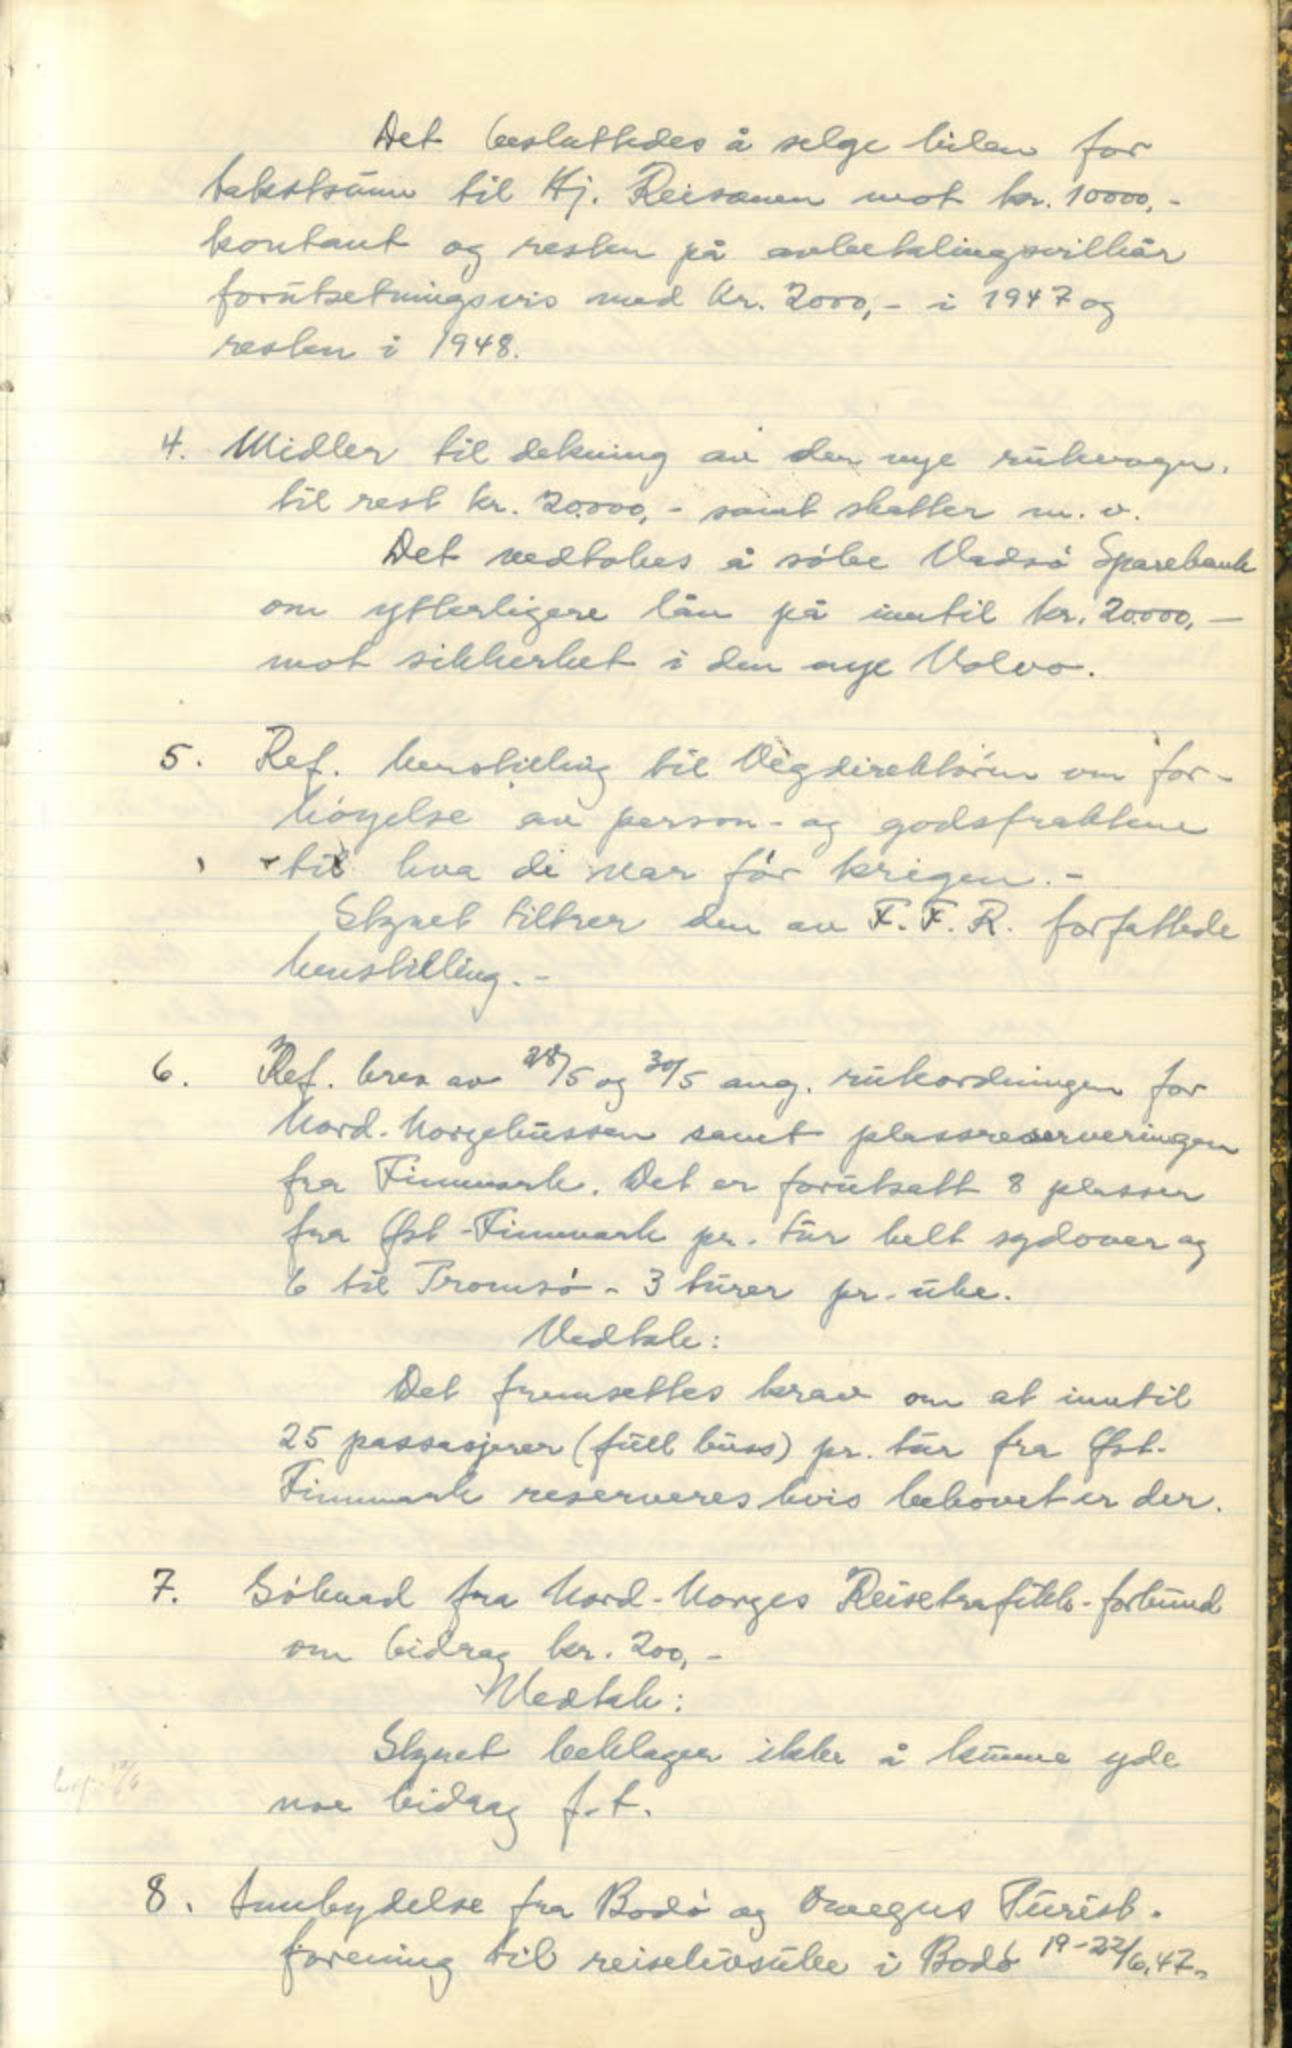 Det besluttedes å selge bilen for
takstsum til Hj. Reisænen mot kr. 10000,-
kontant og resten på avbetalingsvilkår
forutsetningsvis med kr. 2000,- i 1947 og
resten i 1948.
4. Midler til dekning av den nye rutevogn.
til rest kr. 20.000,- samt skatter m. v.
Det vedtokes å söke Vadsö Sparebank
om ytterligere lån på inntil kr. 20.000,-
mot sikkerhet i den nye Volvo.
5. Ref. henstilling til Vegdirektören om for-
höyelse av person- og godsfraktene
til hva di var för krigen.-
Styret tiltrer den av F.F.R. forfattede
henstilling.-
6. Ref. brev av 28/5 og 30/5 ang. ruteordningen for
Nord-Norgebussen samt plassreserveringen
fra Finnmark. Det er forutsatt 8 plasser
fra Øst-Finnmark pr. tur helt sydover og
6 til Tromsö - 3 turer pr. uke.
Vedtak:
Det fremsettes krav om at inntil
25 passasjerer (full buss) pr. tur fra Øst-
Finnmark reserveres hvis behovet er der.
7. Söknad fra Nord-Norges Reisetrafikk-forbund
om bidrag kr. 200,-
Vedtak:
Styret beklager ikke å kunne yde
noe bidrag f.t.
8. Innbydelse fra Bodö og Omegns Turist-
forening til reiselivsuke i Bodö 19-22/6.47.